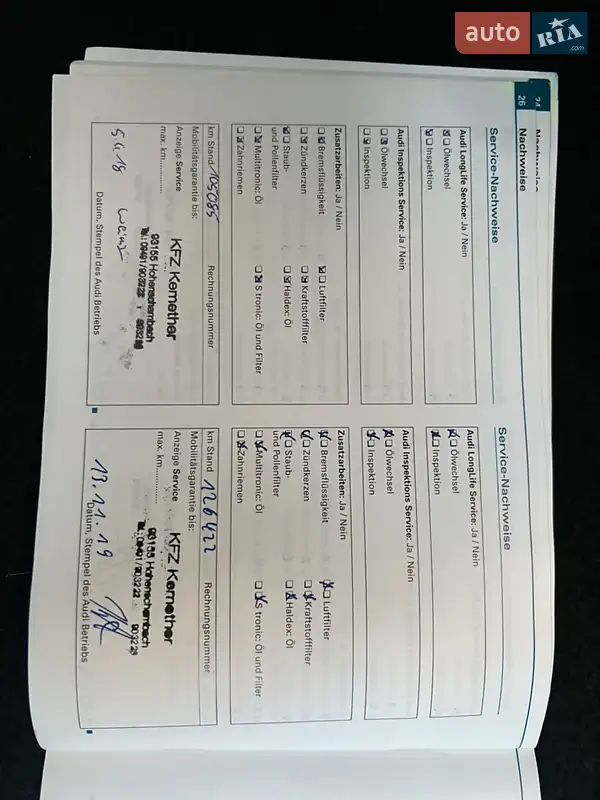 auto RIA.com
24
Nachweise
26
Nachweise
Service-Nachweise
Audi LongLife Service: Ja / Nein
Ölwechsel
Inspektion
Audi Inspektions Service: Ja / Nein
Ölwechsel
Inspektion
Zusatzarbeiten: Ja / Nein
Bremsflüssigkeit
Luftfilter
Zündkerzen
Kraftstofffilter
Staub-
und Pollenfilter
Haldex: Öl
Multitronic: Öl
S tronic: Öl und Filter
Zahnriemen
km Stand 105085
Rechnungsnummer
Mobilitätsgarantie bis:
Anzeige Service
max. km
KFZ Kemether
93155 Hohenschambach
5.4.18
Datum, Stempel des Audi Betriebs
Service-Nachweise
Audi LongLife Service: Ja / Nein
Ölwechsel
Inspektion
Audi Inspektions Service: Ja / Nein
Ölwechsel
Inspektion
Zusatzarbeiten: Ja / Nein
Bremsflüssigkeit
Luftfilter
Zündkerzen
Kraftstofffilter
Staub-
und Pollenfilter
Haldex: Öl
Multitronic: Öl
S tronic: Öl und Filter
Zahnriemen
km Stand 126422
Rechnungsnummer
Mobilitätsgarantie bis:
Anzeige Service
max. km
KFZ Kemether
93155 Hohenschambach
13.11.19
Datum, Stempel des Audi Betriebs